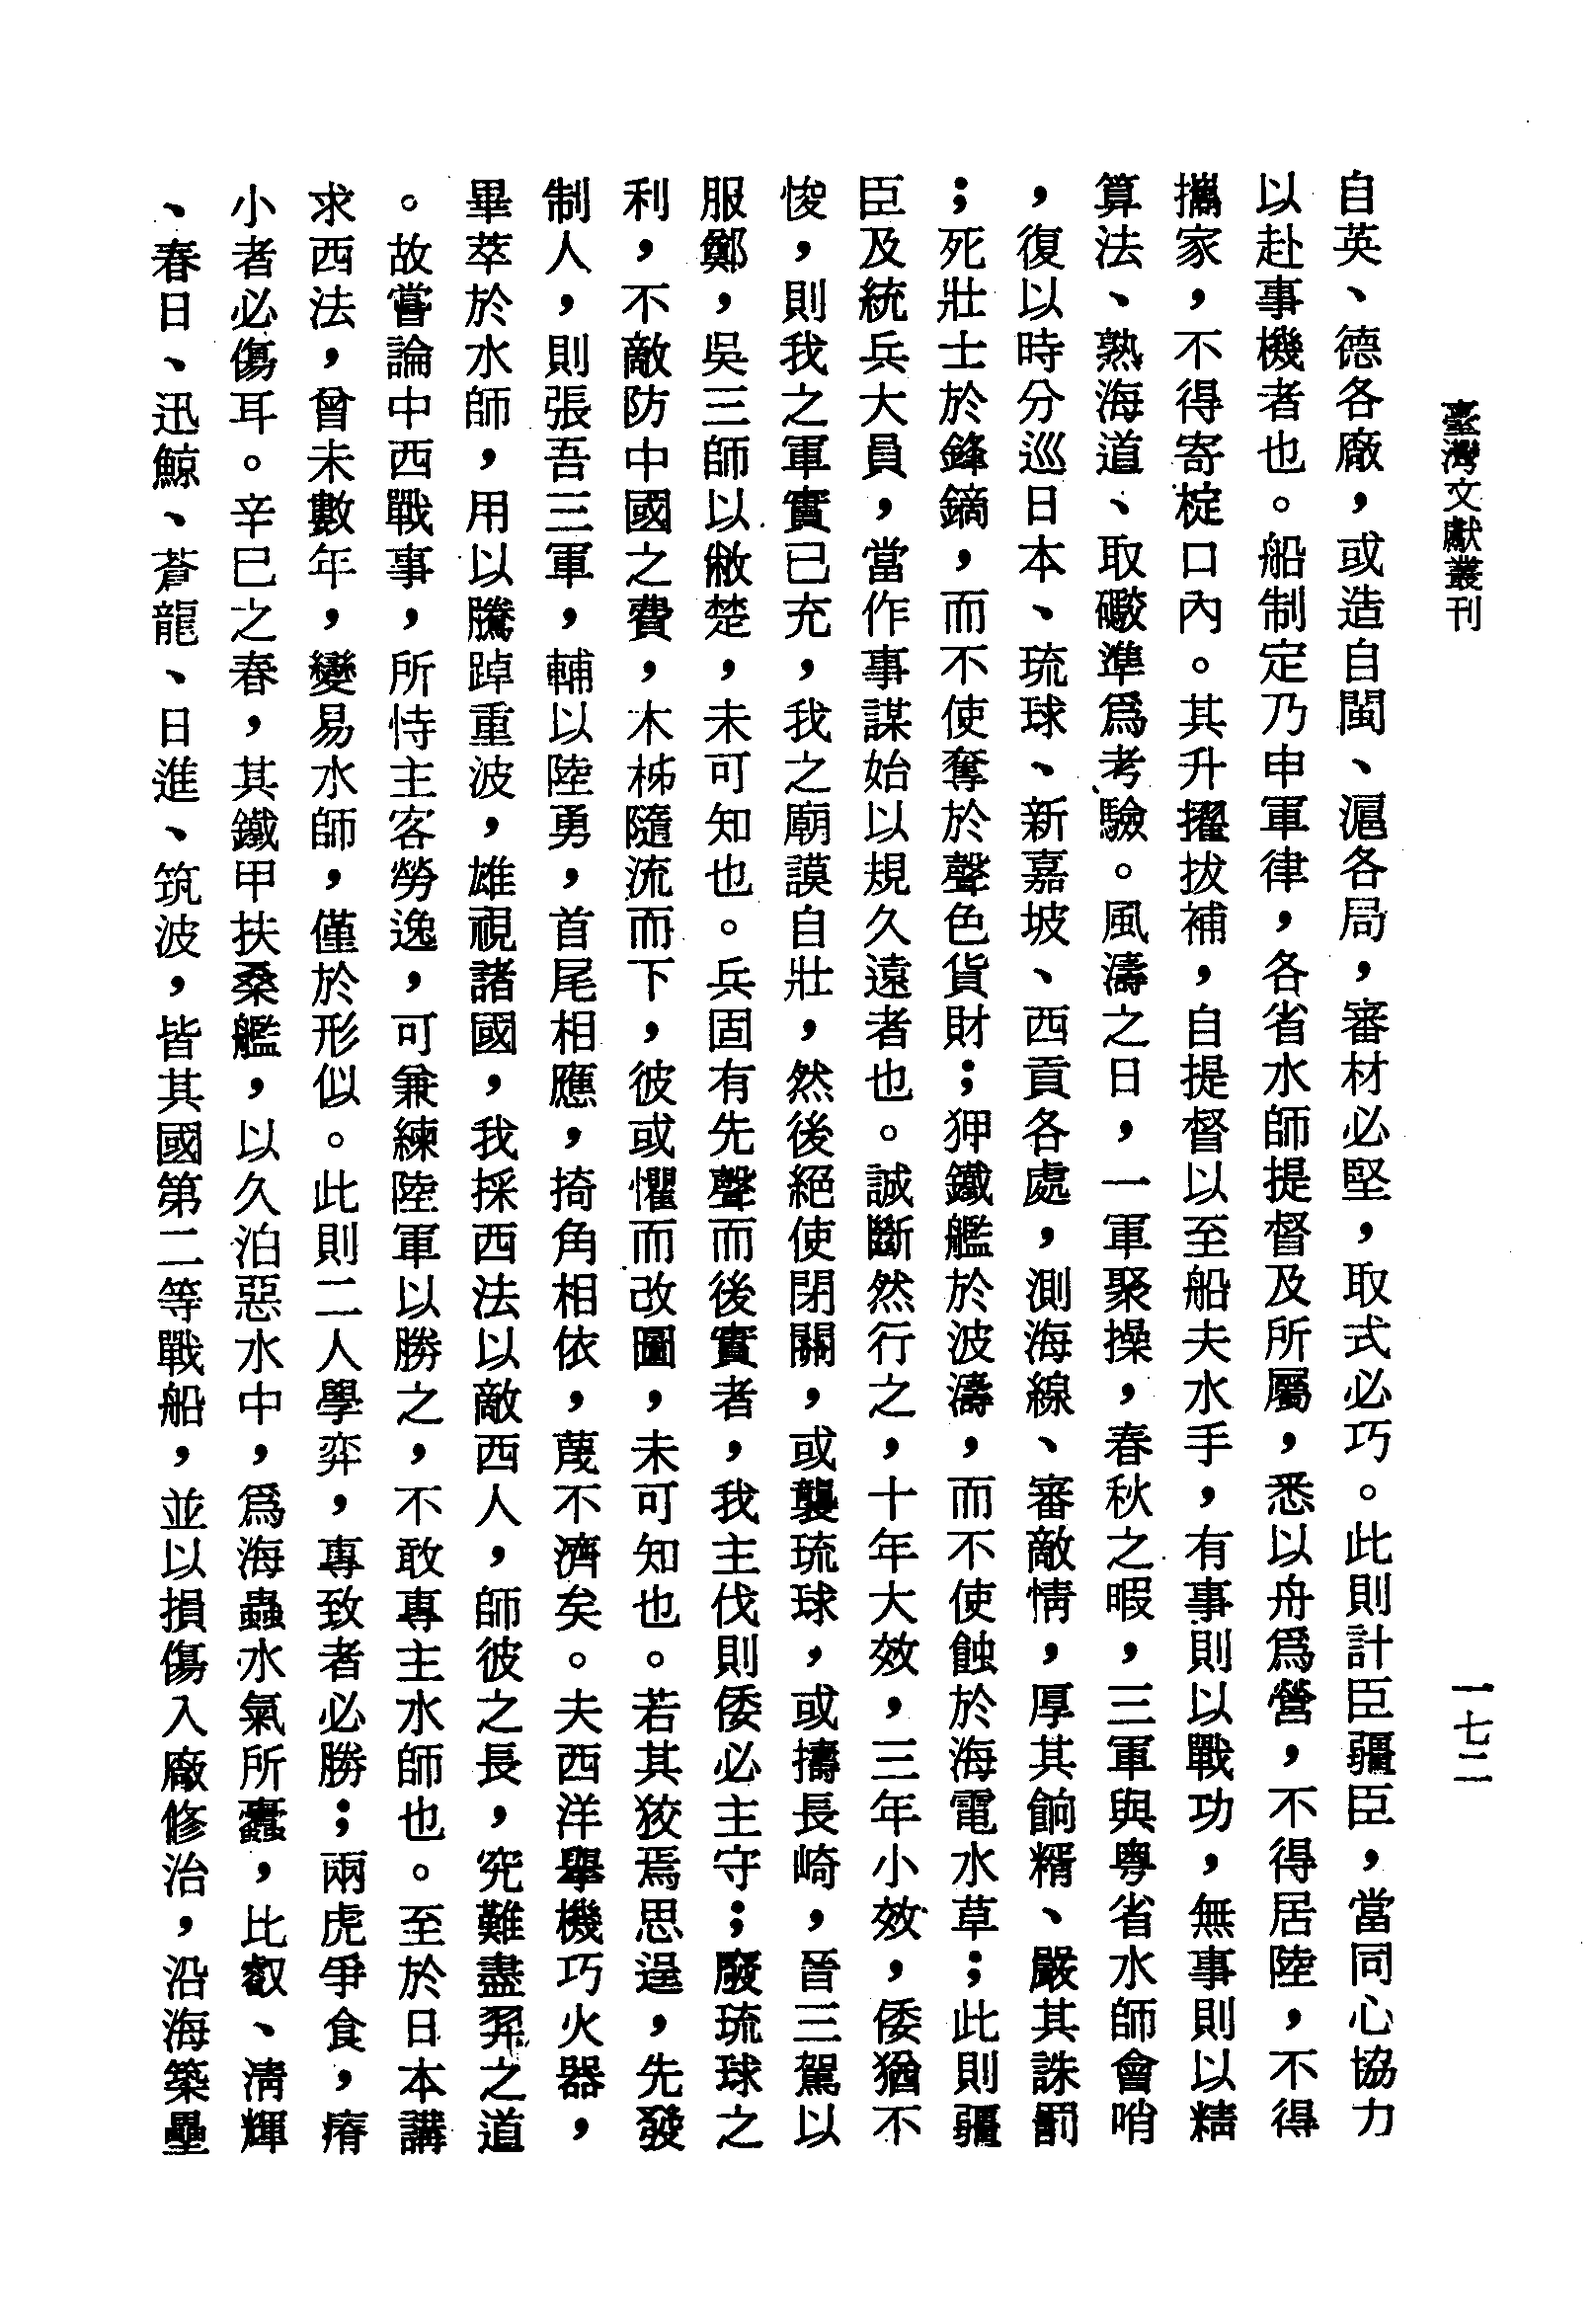 臺灣文獻叢刊
一七二
自英、德各廠，或造自閩、滬各局，審材必堅，取式必巧。此則計臣疆臣，當同心協力
以赴事機者也。船制定乃申軍律，各省水師提督及所屬，悉以舟爲營，不得居陸，不得
攜家，不得寄椗口內。其升擢拔補，自提督以至船夫水手，有事則以戰功，無事則以精
算法、熟海道、取礮準爲考驗。風濤之日，一軍聚操，春秋之暇，三軍與粵省水師會哨
，復以時分巡日本、琉球、新嘉坡、西貢各處，測海線、審敵情，厚其餉糈、嚴其誅罰
；死壯士於鋒鏑，而不使奪於聲色貨財；狎鐵艦於波濤，而不使蝕於海電水草；此則疆
臣及統兵大員，當作事謀始以規久遠者也。誠斷然行之，十年大效，三年小效，倭猶不
悛，則我之軍實已充，我之廟謨自壯，然後絕使閉關，或襲琉球，或擣長崎，晉三駕以
服鄭，吳三師以敝楚，未可知也。兵固有先聲而後實者，我主伐則倭必主守；廢琉球之
利，不敵防中國之費，木柹隨流而下，彼或懼而改圖，未可知也。若其狡焉思逞，先發
制人，則張吾三軍，輔以陸勇，首尾相應，掎角相依，蔑不濟矣。夫西洋舉機巧火器，
畢萃於水師，用以騰踔重波，雄視諸國，我採西法以敵西人，師彼之長，究難盡羿之道
。故嘗論中西戰事，所恃主客勞逸，可兼練陸軍以勝之，不敢專主水師也。至於日本講
求西法，曾未數年，變易水師，僅於形似。此則二人學弈，專致者必勝；兩虎爭食，瘠
小者必傷耳。辛巳之春，其鐵甲扶桑艦，以久泊惡水中，爲海蟲水氣所蠹，比叡、淸輝
、春日、迅鯨、蒼龍、日進、筑波，皆其國第二等戰船，並以損傷入廠修治，沿海築壘